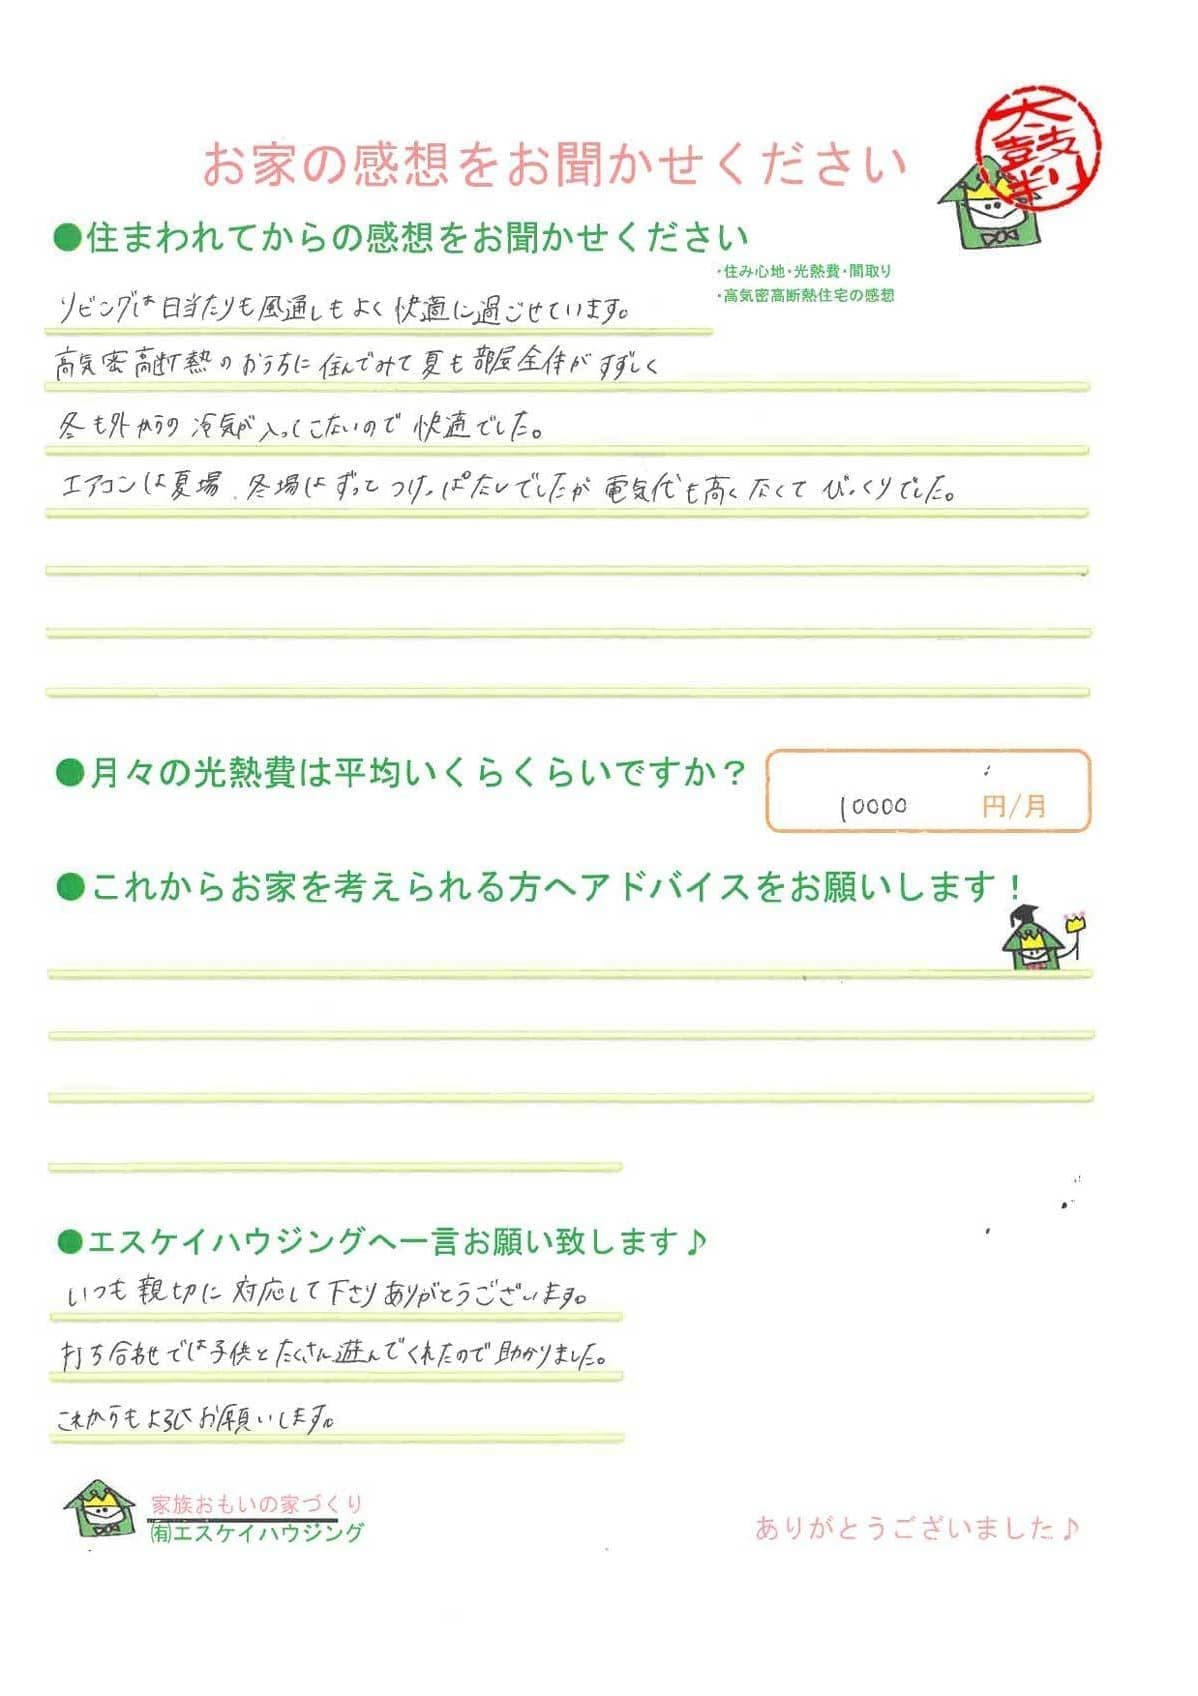 お家の感想をお聞かせください
太鼓まり
●住まわれてからの感想をお聞かせください
・住み心地・光熱費・間取り
・高気密高断熱住宅の感想
リビングは日当たりも風通しもよく快適に過ごせています。
高気密高断熱のおうちに住んでみて夏も部屋全体がすずしく
冬も外からの冷気が入ってこないので快適でした。
エアコンは夏場、冬場はずっとつけっぱなしでしたが電気代も高くなくてびっくりでした。
●月々の光熱費は平均いくらくらいですか？
10000 円/月
●これからお家を考えられる方へアドバイスをお願いします！
●エスケイハウジングへ一言お願い致します♪
いつも親切に対応して下さりありがとうございます。
打ち合わせでは子供とたくさん遊んでくれたので助かりました。
これからもよろしくお願いします。
家族おもいの家づくり
㈲エスケイハウジング
ありがとうございました♪